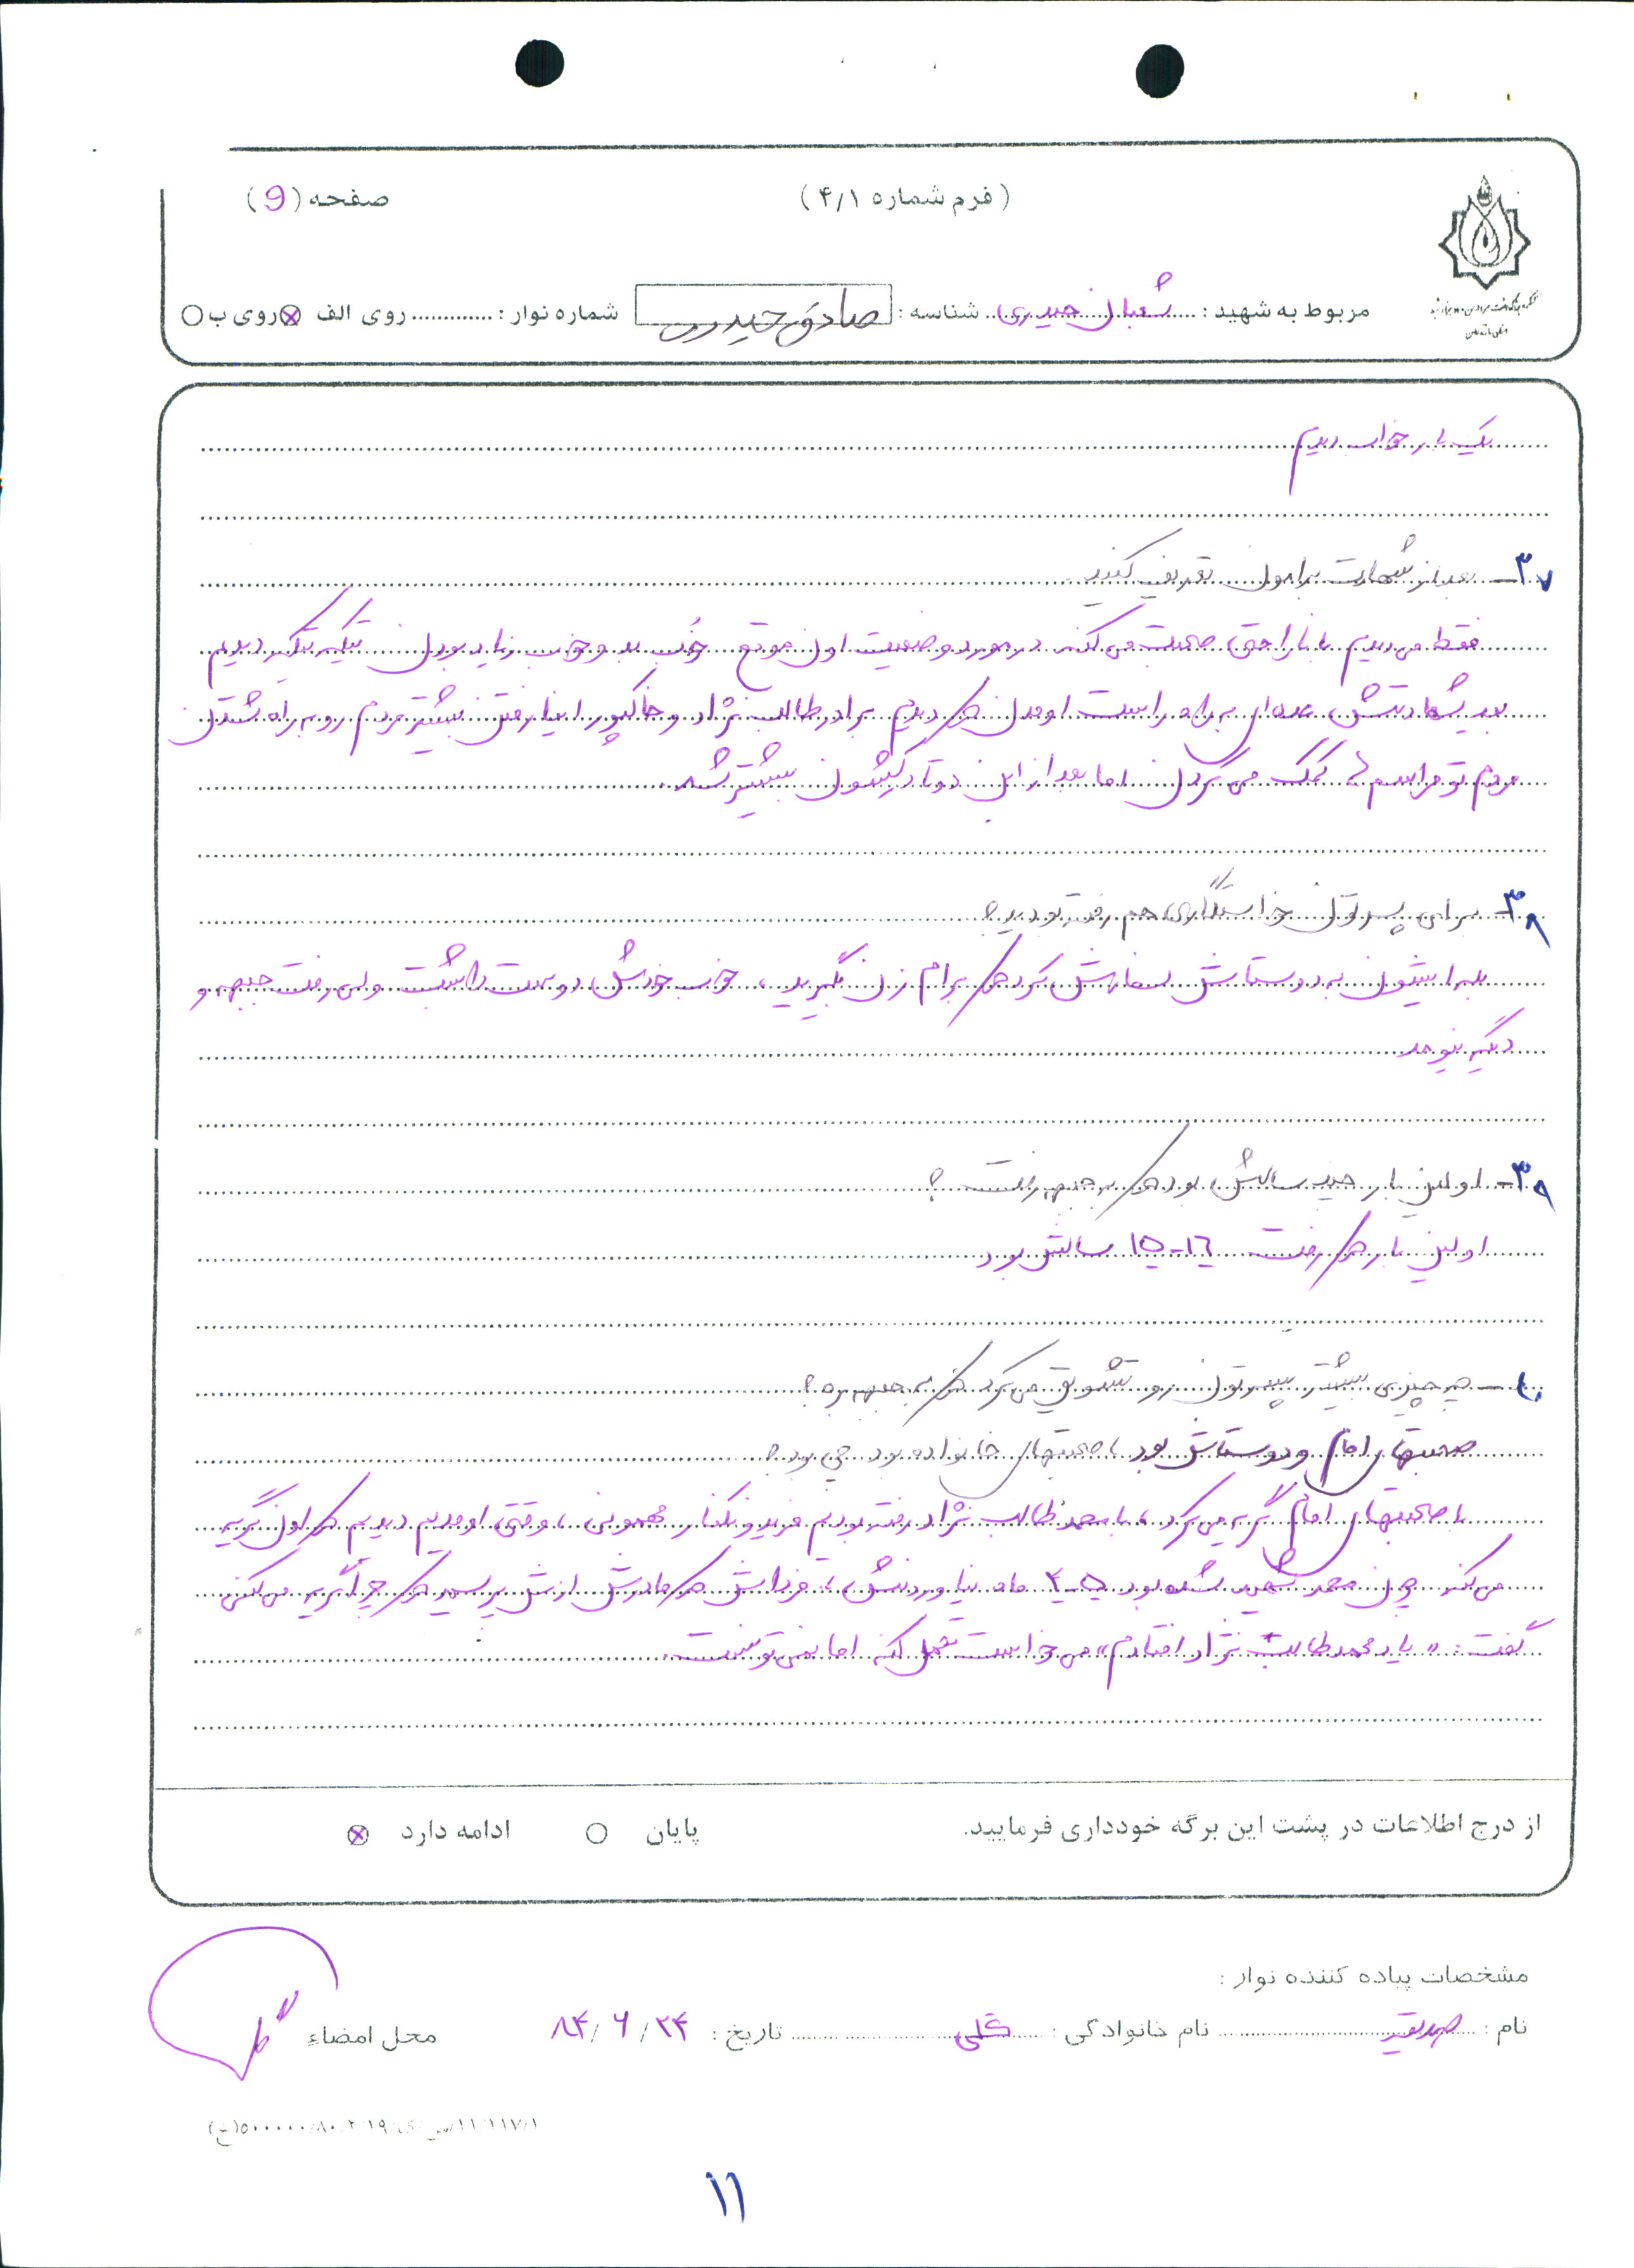 (فرم شماره ۴/۱)
صفحه (9)
مربوط به شهید : شعبان حیدری شناسه : صادق حیدری شماره نوار : ............. روی الف ⊗ روی ب ○
یک بار خواب دیدم
۳۷- بعد از شهادت برامون تعریف کنید
فقط می دیدیم با ناراحتی صحبت می کنه در مورد وضعیت اون موقع خُب بد و خوب زیاد بودن تیکه تیکه دیدیم
بعد شهادتش عده ای به راه راست اومدن که دیدیم برادر طالب نژاد و خاکپور اینا رفتن بیشتر مردم رو به راه شدن
مردم تو مراسم کمک می کردن اما بعد از این دوتا بیشتر شد.
۳۸- برای پسرتون خواستگاری هم رفته بودید؟
به دوستاش سفارش کرد که برام زن بگیرید، خوب خودش دوست داشت ولی رفت جبهه و
دیگه نیومد
۳۹- اولین بار چند سالش بود که به جبهه رفت؟
اولین بار که رفت ۱۶-۱۵ سالش بود
۴۰- چه چیزی بیشتر پسرتون رو تشویق می کرد که به جبهه بره؟
صحبتهای امام و دوستاش بود، صحبتهای خانواده بود چی بود؟
با صحبتهای امام گریه می کرد، با محمد طالب نژاد رفته بودیم فریدونکنار مهمونی، وقتی اومدیم دیدیم که اون گریه
می کنه چون محمد شهید شده بود ۵-۴ ماه نیاوردنش، فرداش که مادرش ازش پرسید که چرا گریه می کنی
گفت: «یاد محمد طالب نژاد افتادم» می خواست تحمل کنه اما نمی تونست.
از درج اطلاعات در پشت این برگه خودداری فرمایید.
پایان ○ ادامه دارد ⊗
مشخصات پیاده کننده نوار :
نام : صدیقه نام خانوادگی : گلی تاریخ : ۸۴/۶/۲۴ محل امضاء
۱۱